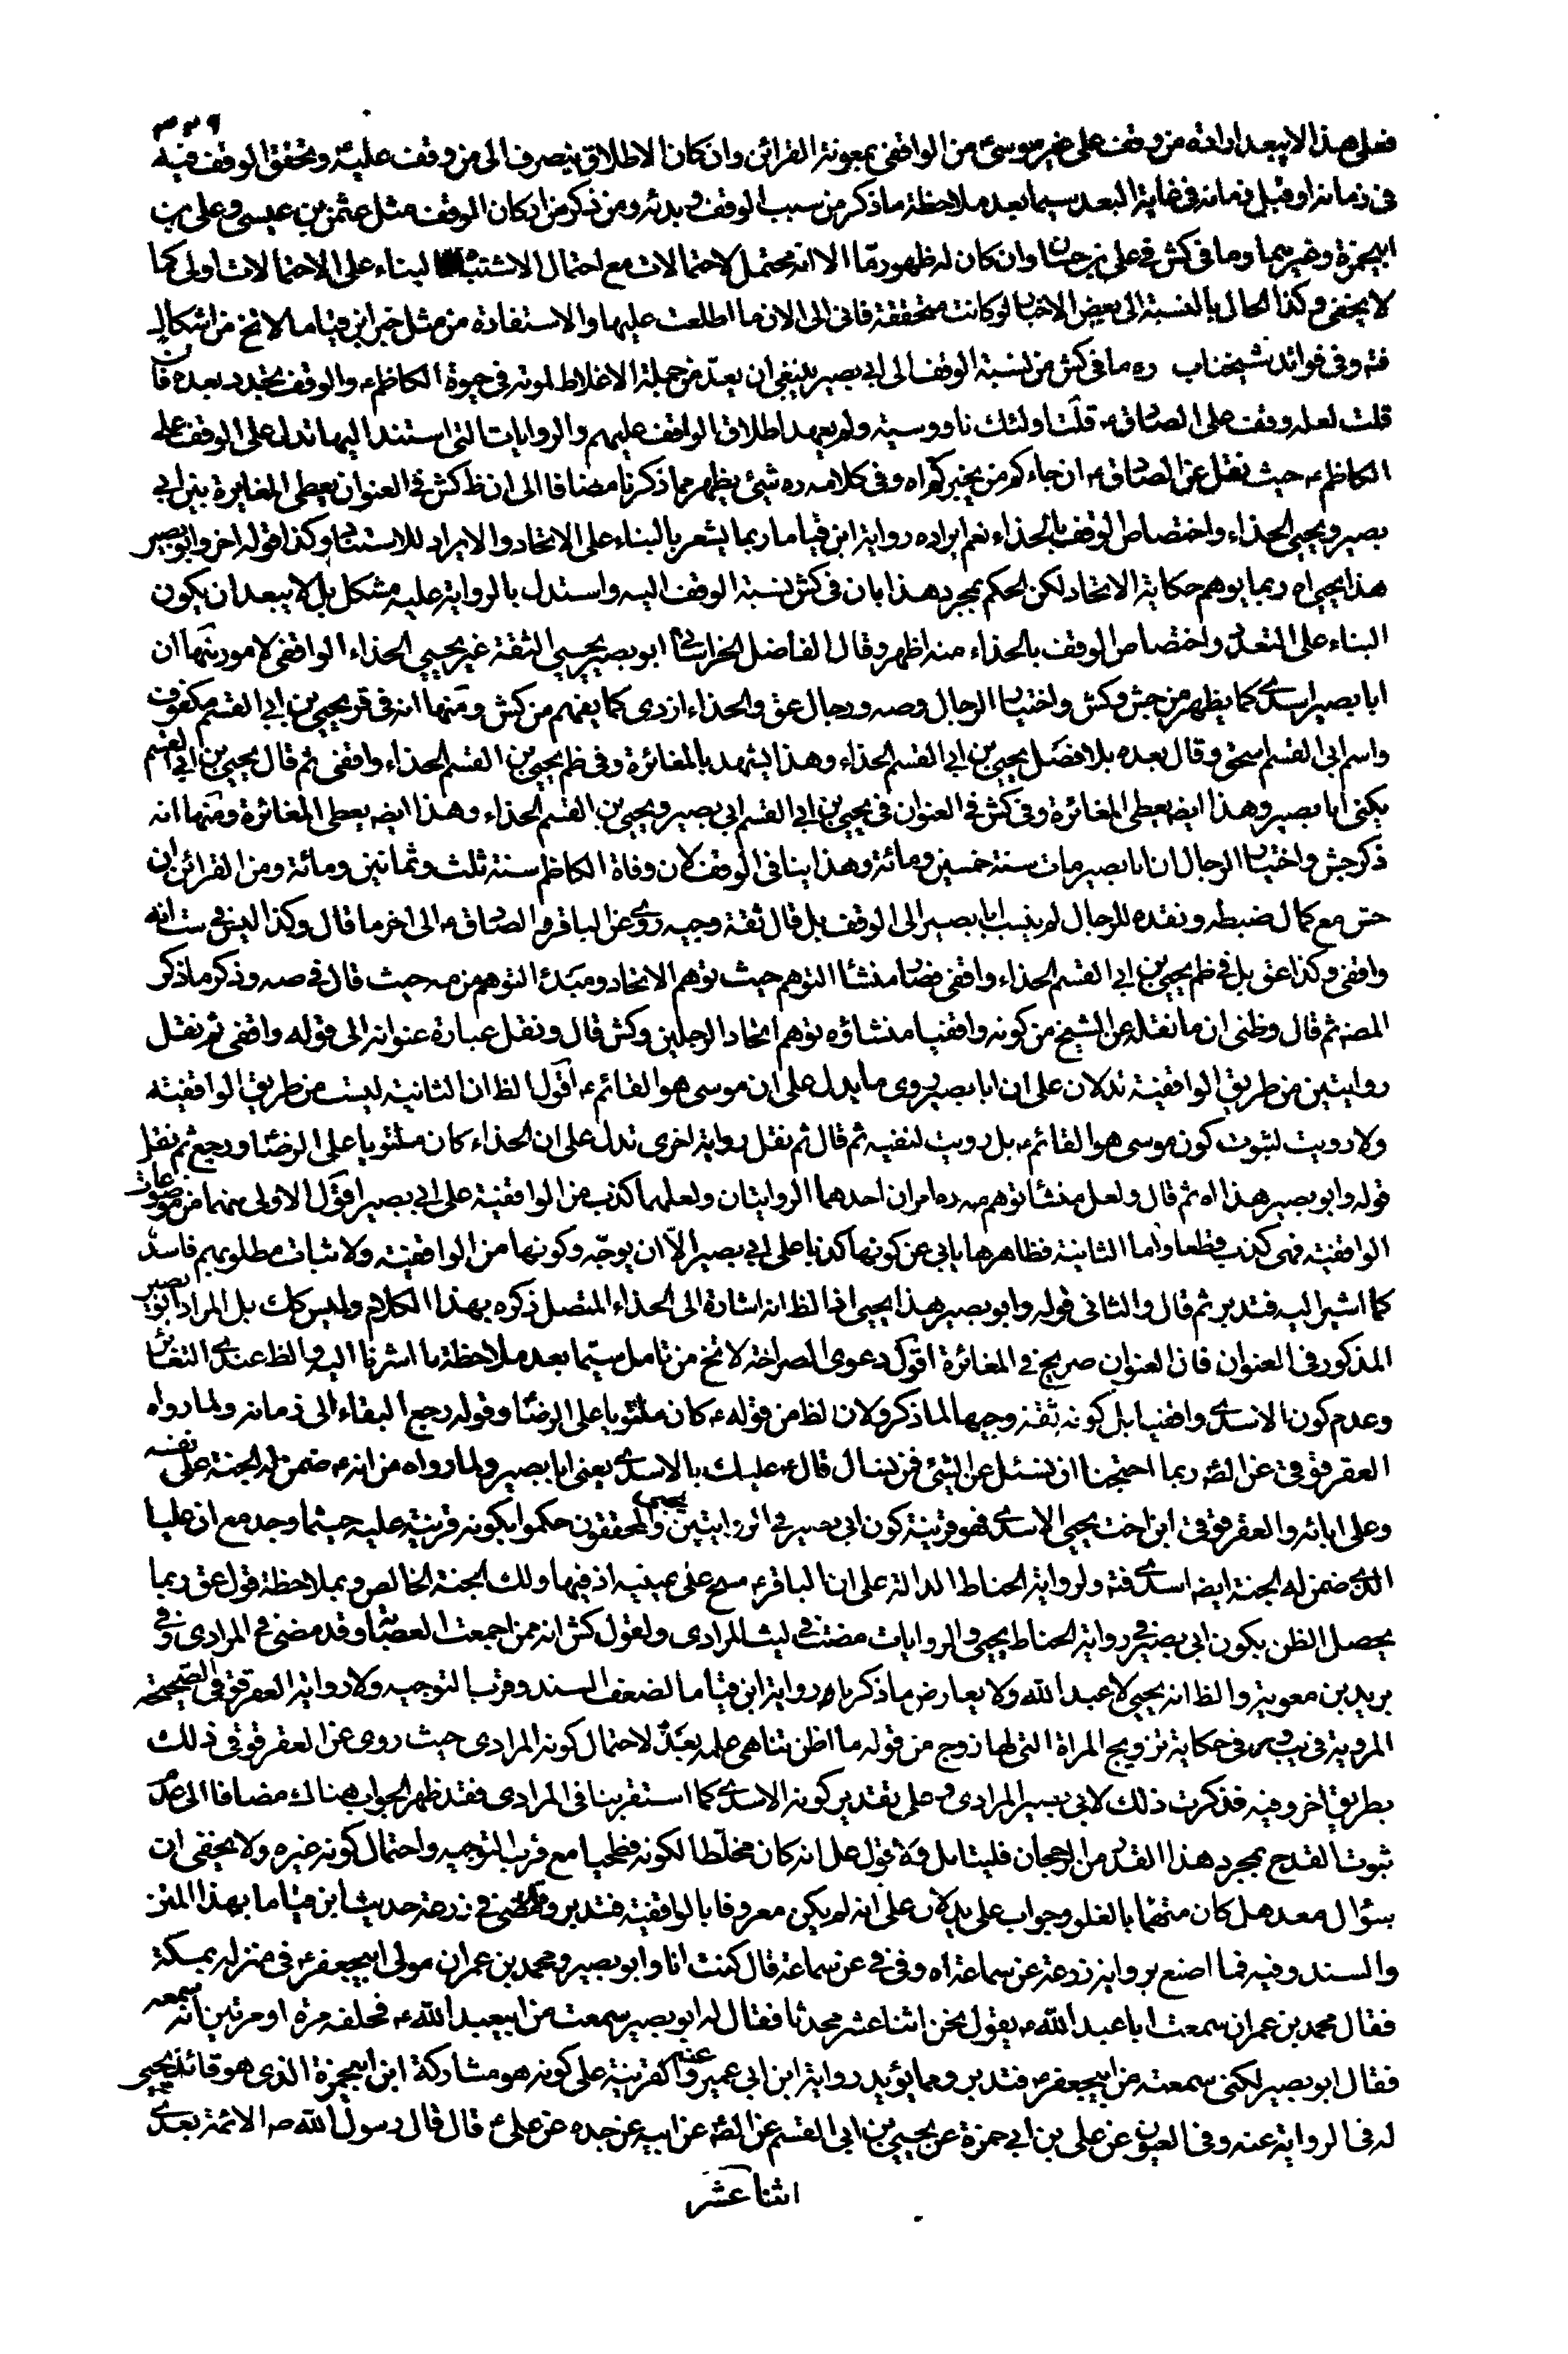 ٣٢٩
فعلى هذا لا يبعد ارادة من وقف على غير موسى ع من الواقفى بمعونة القرائن وان كان الاطلاق ينصرف الى من وقف عليه ع وتحقق الوقف فيه
فى زمانه او قبل زمانه فى غاية البعد سيما بعد ملاحظة ما ذكر من سبب الوقف وبدئه ومن ذكر من اركان الوقف مثل عثمن بن عيسى وعلى بن
ابيحمزة وغيرهما وما فى كش فى على بن حسان وان كان له ظهور ما الا انه محتمل لاحتمالات مع احتمال الاشتباه البناء على الاحتمالات اولى كما
لا يخفى وكذا الحال بالنسبة الى بعض الاخبار لو كانت متحققة فانى الى الان ما اطلعت عليها والاستفادة من مثل خبر ابن قياما لا تخ من اشكال
فته وفى فوائد شيخنا ره ما فى كش من نسبة الوقف الى ابى بصير ينبغى ان يعد من جملة الاغلاط لموته فى حيوة الكاظم ع والوقف تجدد بعده فان
قلت لعله وقف على الصادق ع قلت اولئك ناووسية ولم يعهد اطلاق الواقف عليهم والروايات التى استند اليها تدل على الوقف على
الكاظم ع حيث نقل عن الصادق ع ان جاءكم من يخبركم اه وفى كلامه ره شىء يظهر مما ذكرنا مضافا الى ان ظ كش فى العنوان يعطى المغايرة بين ابى
بصير ويحيى الحذاء واختصاص الوقف بالحذاء نعم ايراده رواية ابن قياما ربما يشعر بالبناء على الاتحاد والايراد للاستناد وكذا قوله اخر وابو بصير
هذا يحيى اه ربما يوهم حكاية الاتحاد لكن الحكم بمجرد هذا بان فى كش نسبة الوقف اليه واستدل بالرواية عليه مشكل بل لا يبعد ان يكون
البناء على التعدد واختصاص الوقف بالحذاء منه اظهر وقال الفاضل الخراسانى ابو بصير يحيى الثقة غير يحيى الحذاء الواقفى لامور منها ان
ابا بصير اسدى كما يظهر من جش وكش واختيار الرجال وصه ورجال عق والحذاء ازدى كما يفهم من كش ومنها انه فى قر يحيى بن ابى القسم مكفوف
واسم ابى القسم اسحق وقال بعده بلا فصل يحيى بن ابى القسم الحذاء وهذا يشهد بالمغائرة وفى ظم يحيى بن القسم الحذاء واقفى ثم قال يحيى بن ابى القسم
يكنى ابا بصير وهذا ايضه يعطى المغائرة وفى كش فى العنوان فى يحيى بن ابى القسم ابى بصير ويحيى بن القسم الحذاء وهذا ايضه يعطى المغائرة ومنها انه
ذكر جش واختيار الرجال ان ابا بصير مات سنة خمسين ومائة وهذا ينافى الوقف لان وفاة الكاظم سنة ثلث وثمانين ومائة ومن القرائن ان
جش مع كمال ضبطه ونقده للرجال لم ينسب ابا بصير الى الوقف بل قال ثقة وجيه روى عن الباقر والصادق ع الى اخر ما قال وكذا ليس فى ست انه
واقفى وكذا عق بل فى ظم يحيى بن ابى القسم الحذاء واقفى فصار منشأ التوهم حيث توهم الاتحاد ومبدء التوهم من مه حيث قال فى صه وذكر ما ذكر
المصه ثم قال وظنى ان ما نقله عن الشيخ من كونه واقفيا منشاؤه توهم اتحاد الرجلين وكش قال ونقل عبارة عنوانه الى قوله واقفى ثم نقل
روايتين من طريق الواقفية تدلان على ان ابا بصير يروى ما يدل على ان موسى هو القائم ع اقول الظ ان الثانية ليست من طريق الواقفية
ولا رويت لثبوت كون موسى هو القائم ع بل رويت لنفيه ثم قال ثم نقل رواية اخرى تدل على ان الحذاء كان ملتويا على الرضا ورجع ثم نقل
قوله وابو بصير هذا اه ثم قال ولعل منشأ توهم مه ره امران احدهما الروايتان ولعلهما كذب من الواقفية على ابى بصير اقول الاولى منهما من موضوعات
الواقفية فهى كذب قطعا واما الثانية فظاهرها يابى عن كونها كذبا على ابى بصير الا ان يوجه وكونها من الواقفية ولاثبات مطلوبهم فاسد
كما اشير اليه فتدبر ثم قال والثانى قوله وابو بصير هذا يحيى اه اذ الظ انه اشارة الى الحذاء المتصل ذكره بهذا الكلام وليس كك بل المراد ابو بصير
المذكور فى العنوان فان العنوان صريح فى المغائرة اقول دعوى الصراحة لا تخ من تامل سيما بعد ملاحظة ما اشرنا اليه والظ عندى التغاير
وعدم كون الاسدى واقفيا بل كونه ثقة وجيها لما ذكر ولان الظ من قوله ع كان ملتويا على الرضا وقوله رجع البقاء الى زمانه ولما رواه
العقرقوفى عن الصه ربما احتجنا ان نسئل عن الشىء فمن نسال قال ع عليك بالاسدى يعنى ابا بصير ولما رواه من انه ع ضمن له الجنة على نفسه
وعلى ابائه والعقرقوفى ابن اخت يحيى الاسدى فهو قرينة كون ابى بصير فى الروايتين يحيى والمحققون حكموا بكونه قرينة عليه حيثما وجد مع ان عليا
الذى ضمن له الجنة ايضه اسدى فته ولرواية الحناط الدالة على ان الباقر ع مسح على عينيه اذ فيها ولك الجنة الخالص وبملاحظة قول عق ربما
يحصل الظن بكون ابى بصير فى رواية الحناط يحيى والروايات مضت فى ليث المرادى ولقول كش انه ممن اجمعت العصابة وقد مضى فى المرادى وفى
بريد بن معوية والظ انه يحيى لا عبد الله ولا يعارض ما ذكرناه رواية ابن قياما لضعف السند وقرب التوجيه ولا رواية العقرقوفى الصحيحة
المروية فى يب فى حكاية تزويج المراة التى لها زوج من قوله ما اظن تناهى علمه بعد لاحتمال كونه المرادى حيث روى عن العقرقوفى ذلك
بطريق اخر وفيه فذكرت ذلك لابى بصير المرادى وعلى تقدير كونه الاسدى كما استقربنا فى المرادى فقد ظهر الجواب هناك مضافا الى عدم
ثبوت القدح بمجرد هذا القدر من الرجحان فليتامل فيه قول على انه كان مخلطا لكونه فطحيا مع قرب التوجيه واحتمال كونه غيره ولا يخفى ان
سؤال معد هل كان متهما بالغلو وجواب على يدلان على انه لم يكن معروفا بالواقفية فتدبر وقد مضى فى زرعة حديث ابن قياما بهذا المتن
والسند وفيه فما اصنع برواية زرعة عن سماعة اه وفى فى عن سماعة قال كنت انا وابو بصير ومحمد بن عمران مولى ابيجعفر ع فى منزله بمكة
فقال محمد بن عمران سمعت ابا عبد الله ع يقول نحن اثنا عشر محدثا فقال له ابو بصير سمعت من ابيعبد الله ع فحلفه مرة او مرتين انه سمعه
فقال ابو بصير لكنى سمعته من ابيجعفر ع فتدبر ومما يؤيد رواية ابن ابى عمير عنه وا لقرينة على كونه هو مشاركة ابن ابيحمزة الذى هو قائد يحيى
له فى الرواية عنه وفى العيون عن على بن ابى حمزة عن يحيى بن ابى القسم عن الصه عن ابيه عن جده عن على ع قال قال رسول الله ص الائمة بعدى
اثنا عشر